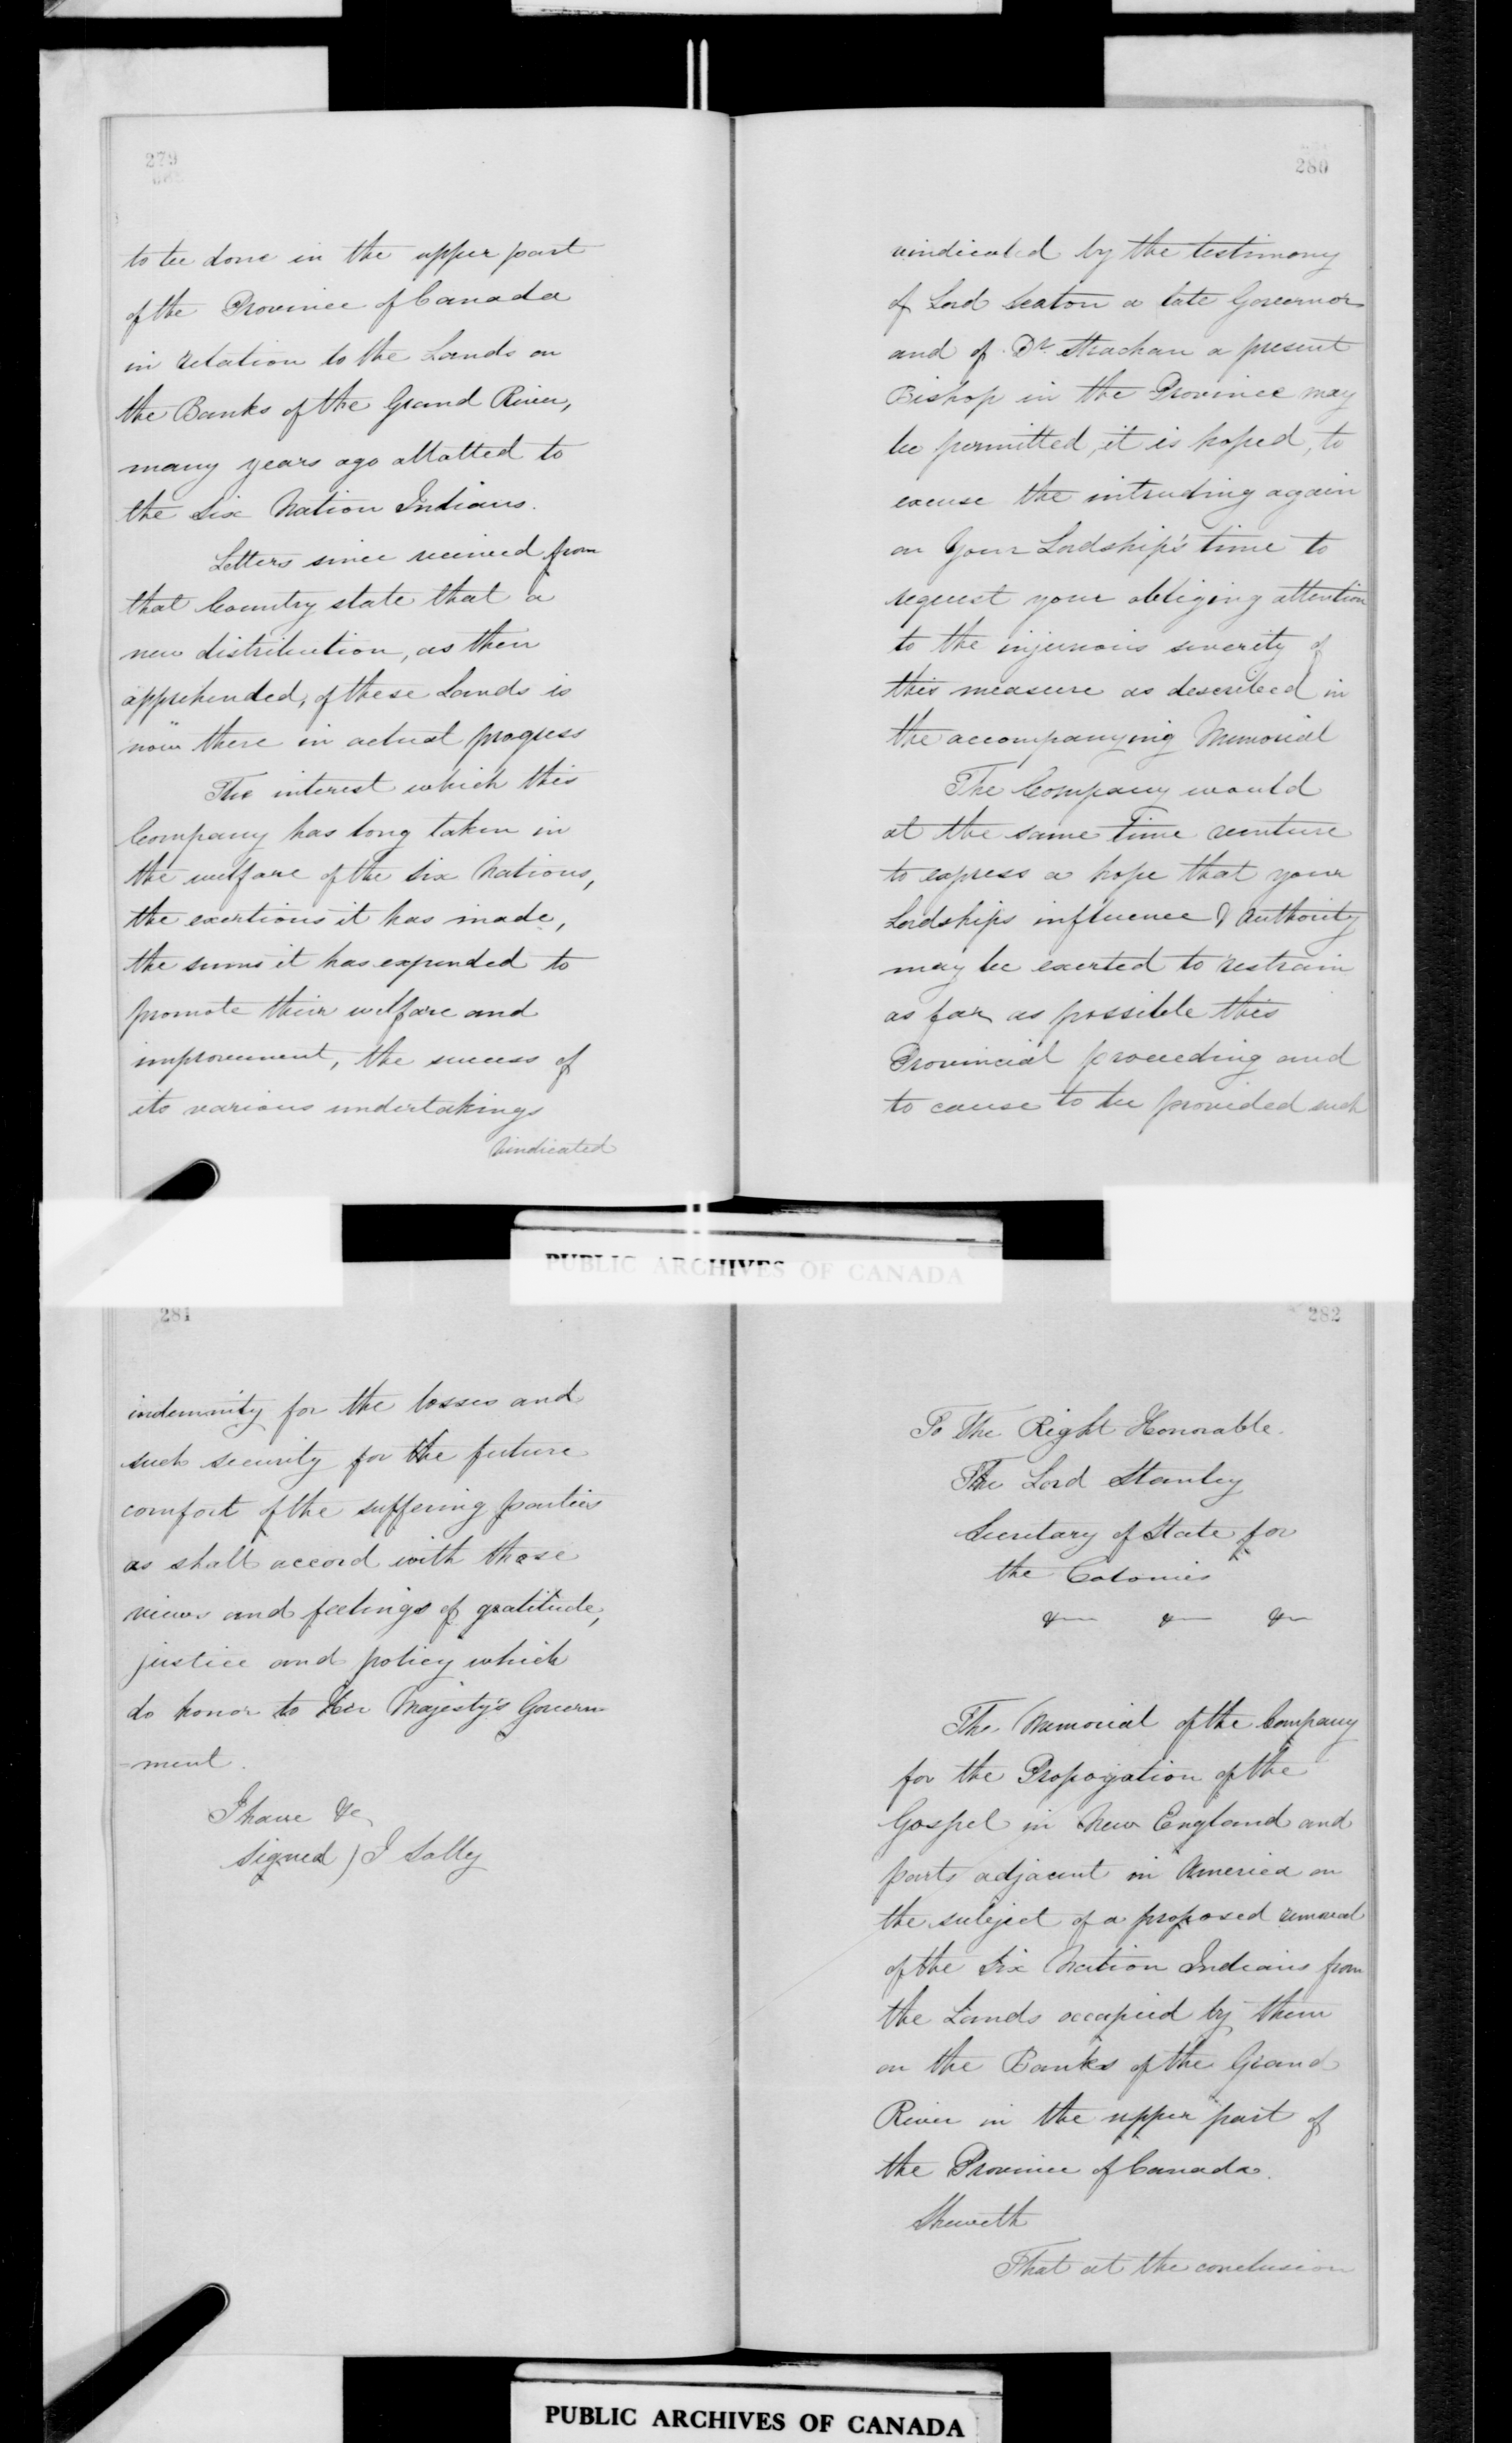 279
to be done in the upper part
of the Province of Canada
in relation to the Lands on
the Banks of the Grand River,
many years ago allotted to
the Six Nation Indians.
Letters since received from
that Country state that a
new distribution, as then
apprehended, of these Lands is
now there in actual progress
The interest which this
Company has long taken in
the welfare of the Six Nations,
the exertions it has made,
the sums it has expended to
promote their welfare and
improvement, the success of
its various undertakings
vindicated
280
vindicated by the testimony
of Lord Seaton a late Governor
and of Dr. Strachan a present
Bishop in the Province may
be permitted, it is hoped, to
excuse the intruding again
on Your Lordship's time to
request your obliging attention
to the injurious severity of
this measure as described in
the accompanying Memorial
The Company would
at the same Time venture
to express a hope that your
Lordships influence & Authority
may be exerted to restrain
as far as possible this
Provincial proceeding and
to cause to be provided such
PUBLIC ARCHIVES OF CANADA
281
indemnity for the losses and
such security for the future
comfort of the suffering parties
as shall accord with those
views and feelings of gratitude,
justice and policy which
do honor to Her Majesty's Govern
-ment.
I have &c
signed) J Solly
282
To The Right Honorable
The Lord Stanley
Secretary of State for
the Colonies
&c &c &c
The Memorial of the Company
for the Propogation of the
Gospel in New England and
parts adjacent in America on
the subject of a proposed removal
of the Six Nation Indians from
the Lands occupied by them
on the Banks of the Grand
River in the upper part of
the Province of Canada.
Sheweth
That at the conclusion
PUBLIC ARCHIVES OF CANADA